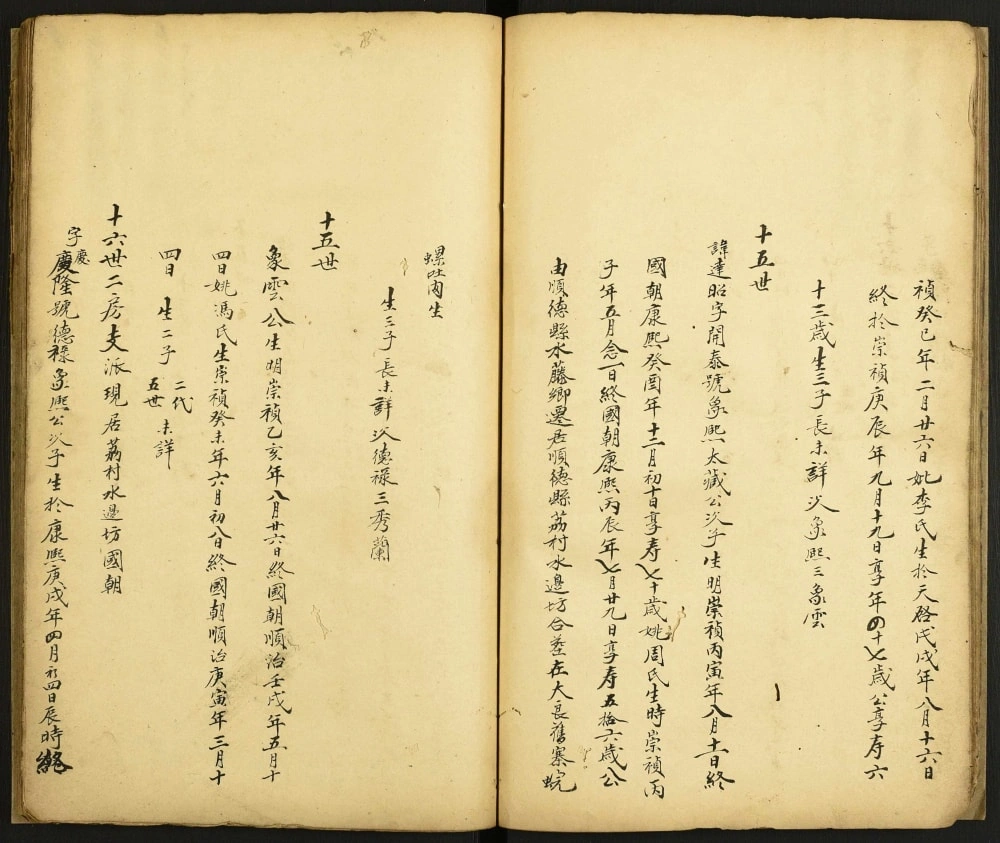 禎癸巳年二月廿六日妣李氏生於天啓戊戌年八月十六日
終於崇禎庚辰年九月十九日享年四十七歲公享壽六
十三歲生三子長未詳次象熙三象雲
十五世
諱達昭字開泰號象熙太藏公次子生明崇禎丙寅年八月十一日終
國朝康熙癸酉年十二月初十日享寿七十歲姚周氏生時崇禎丙
子年五月念一日終國朝康熙丙辰年七月廿九日享寿五拾六歲公
由順德縣水藤鄉遷居順德縣荔村水邊坊合塟在大良舊寨蜿
螺吐肉生
生三子長未詳次德祿三秀蘭
十五世
象雲公生明崇禎乙亥年八月廿六日終國朝順治壬戌年五月十
四日姚馮氏生崇禎癸未年六月初八日終國朝順治庚寅年三月十
四日 生二子 二代五世未詳
十六世二房支派現居荔村水邊坊國朝
字慶隆號德祿象熙公次子生於康熙庚戌年四月初四日辰時終